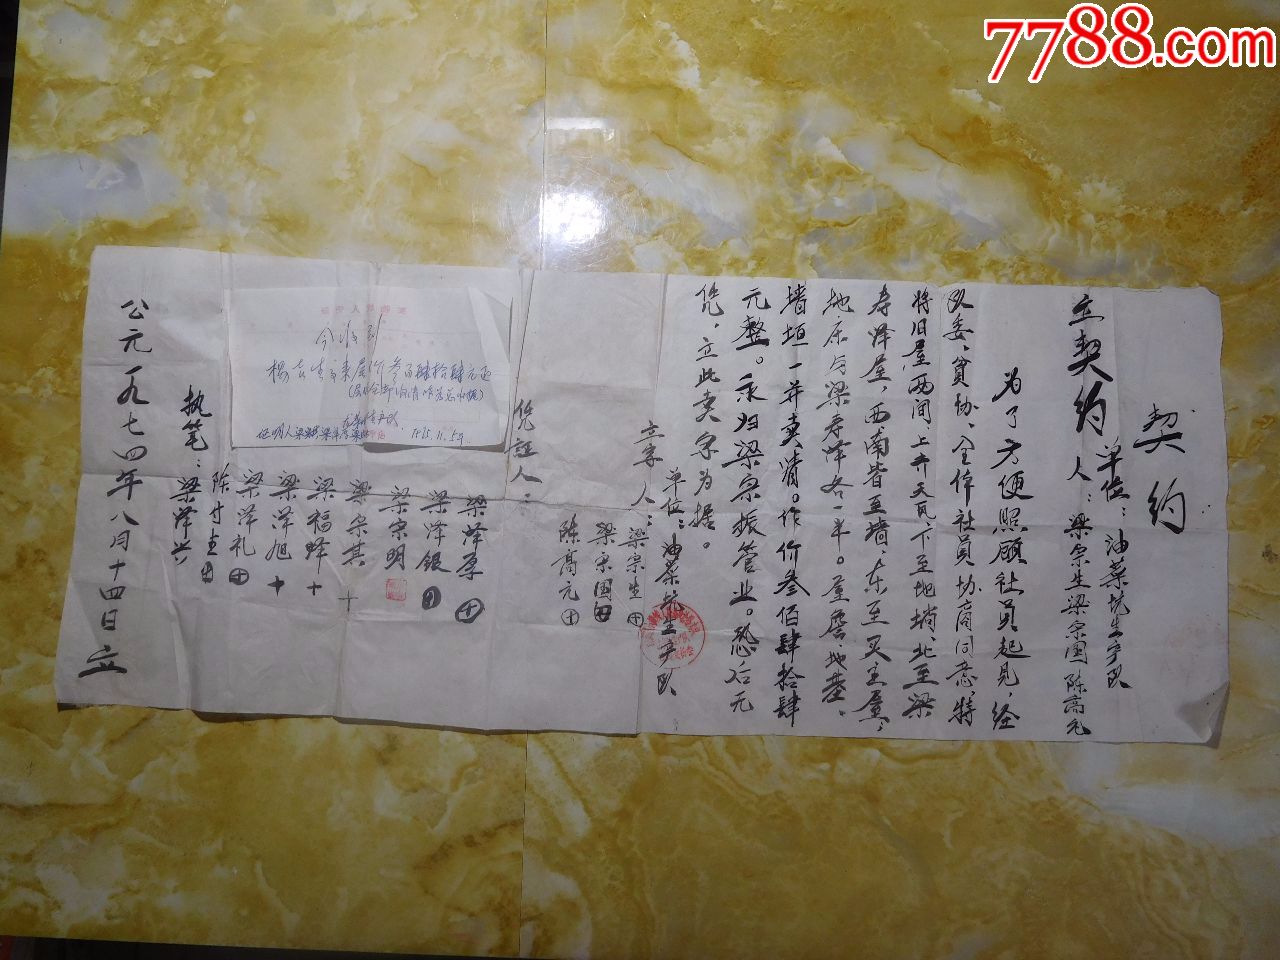 7788.com
契约
立契约
单位:油菜坑生产队
人:梁宗生梁宗国陈高元
为了方便照顾社员起见,经
队委、贫协、全体社员协商同意,特
将旧屋两间上并天瓦下至地塝,北至梁
寿泽屋,西南皆至墙,东至买主屋,
地库与梁寿泽各一半。屋磨、地基、
墙垣一并卖清。作价叁佰肆拾肆
元整。永归梁宗振管业。恐后无
凭,立此卖字为据。
立字
单位:油菜坑生产队
人:梁宗生
梁宗国
陈高元
凭证人:
梁泽厚
梁泽银
梁宗明
梁宗其
梁福烽
梁泽旭
梁泽礼
执笔:梁泽兴
公元一九七四年八月十四日立
今收到
屋价叁百肆拾肆元正
证明人
1975.11.5